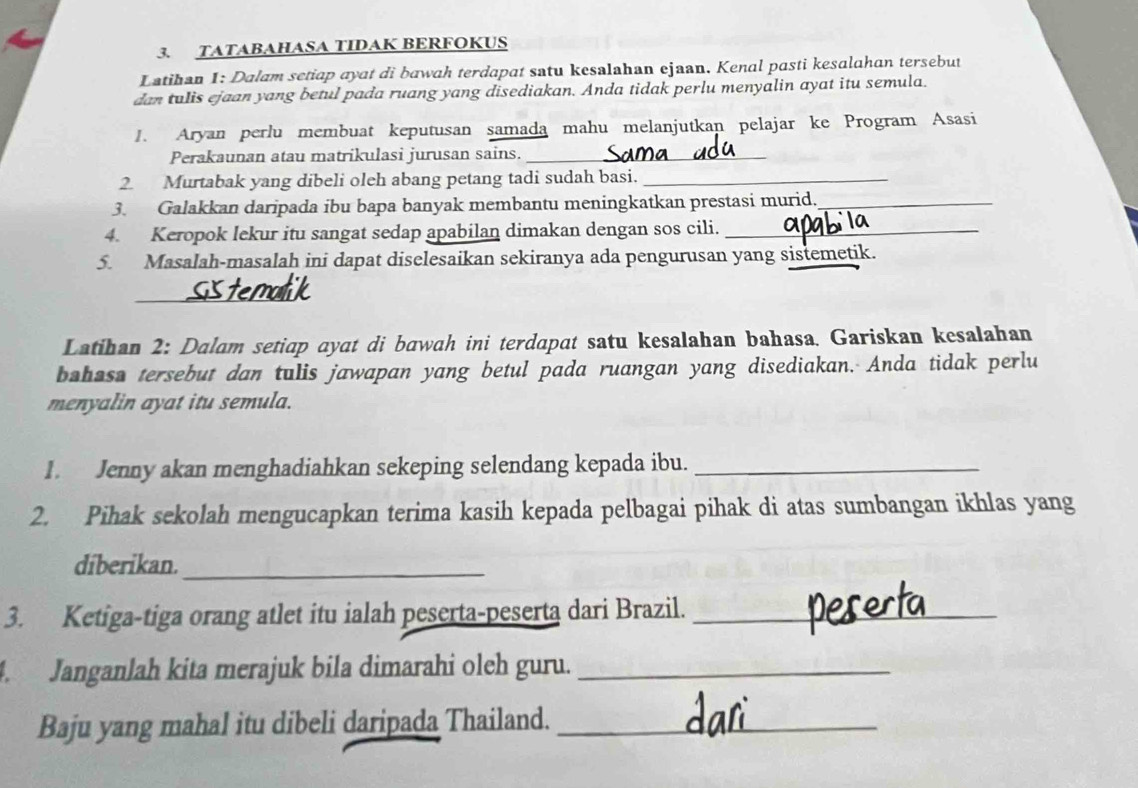 3. TATABAHASA TIDAK BERFOKUS
Latihan 1: Dalam setiap ayat di bawah terdapat satu kesalahan ejaan. Kenal pasti kesalahan tersebut
dan tulis ejaan yang betul pada ruang yang disediakan. Anda tidak perlu menyalin ayat itu semula.
1. Aryan perlu membuat keputusan samada mahu melanjutkan pelajar ke Program Asasi
Perakaunan atau matrikulasi jurusan sains. Sama ada
2. Murtabak yang dibeli oleh abang petang tadi sudah basi.
3. Galakkan daripada ibu bapa banyak membantu meningkatkan prestasi murid.
4. Keropok lekur itu sangat sedap apabilan dimakan dengan sos cili. apabila
5. Masalah-masalah ini dapat diselesaikan sekiranya ada pengurusan yang sistemetik.
sistematik
Latihan 2: Dalam setiap ayat di bawah ini terdapat satu kesalahan bahasa. Gariskan kesalahan
bahasa tersebut dan tulis jawapan yang betul pada ruangan yang disediakan. Anda tidak perlu
menyalin ayat itu semula.
1. Jenny akan menghadiahkan sekeping selendang kepada ibu.
2. Pihak sekolah mengucapkan terima kasih kepada pelbagai pihak di atas sumbangan ikhlas yang
diberikan.
3. Ketiga-tiga orang atlet itu ialah peserta-peserta dari Brazil. peserta
4. Janganlah kita merajuk bila dimarahi oleh guru.
Baju yang mahal itu dibeli daripada Thailand. dari